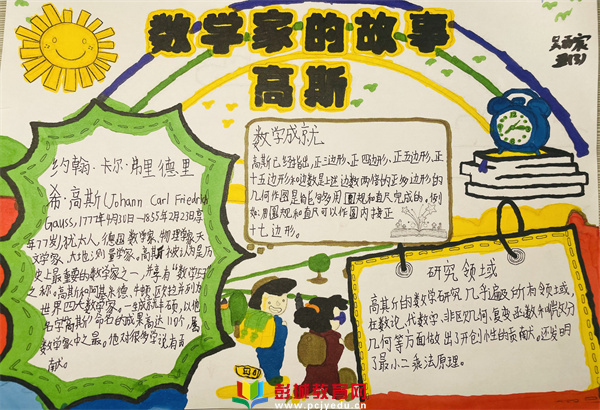 数学家的故事
高斯
约翰·卡尔·弗里德里
希·高斯(Johann Carl Friedrich
Gauss,1777年4月30日—1855年2月23日,享
年77岁)犹太人,德国数学家、物理学家、天
文学家、大地测量学家,高斯被认为是历
史上最重要的数学家之一,并享有"数学王子"
之称。高斯和阿基米德、牛顿、欧拉并列为
世界四大数学家。一生成就丰硕,以他
名字"高斯"命名的成果达110个,属
数学家中之最。他对很多学说有贡
献。
数学成就
高斯已经指出,正三边形、正四边形、正五边形、正
十五边形和边数是上述边数两倍的正多边形的
几何作图是能够用圆规和直尺完成的。例
如:用圆规和直尺可以作圆内接正
十七边形。
研究领域
高其斤的数学研究几乎遍及所有领域,
在数论、代数学、非欧几何、复变函数和微分
几何等方面做出了开创性的贡献,还发明
了最小二乘法原理。
彭越教育网
www.pcjyedu.cn